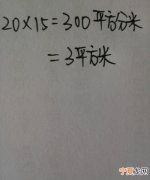 20×15=300平方分米
=3平方米